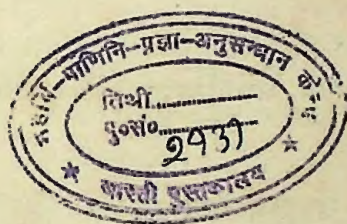 महर्षि-पाणिनि-प्रज्ञा-अनुसन्धान केन्द्र
तिथी............
पु०सं०............
* भारती पुस्तकालय *